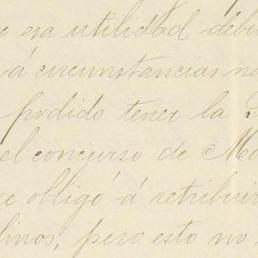 e esa utilidad debi
á circunstancias no
podido tener la
el concurso de Ma
se obligó á retribuir
linos, pero esto no